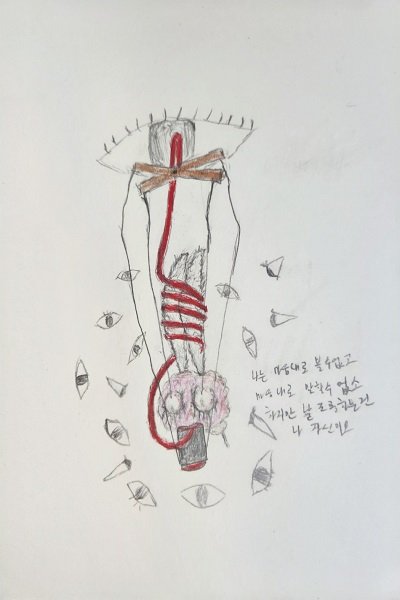 나는 마음대로 볼수없고
마음대로 말할수 없소
하지만 날
나 자신이오